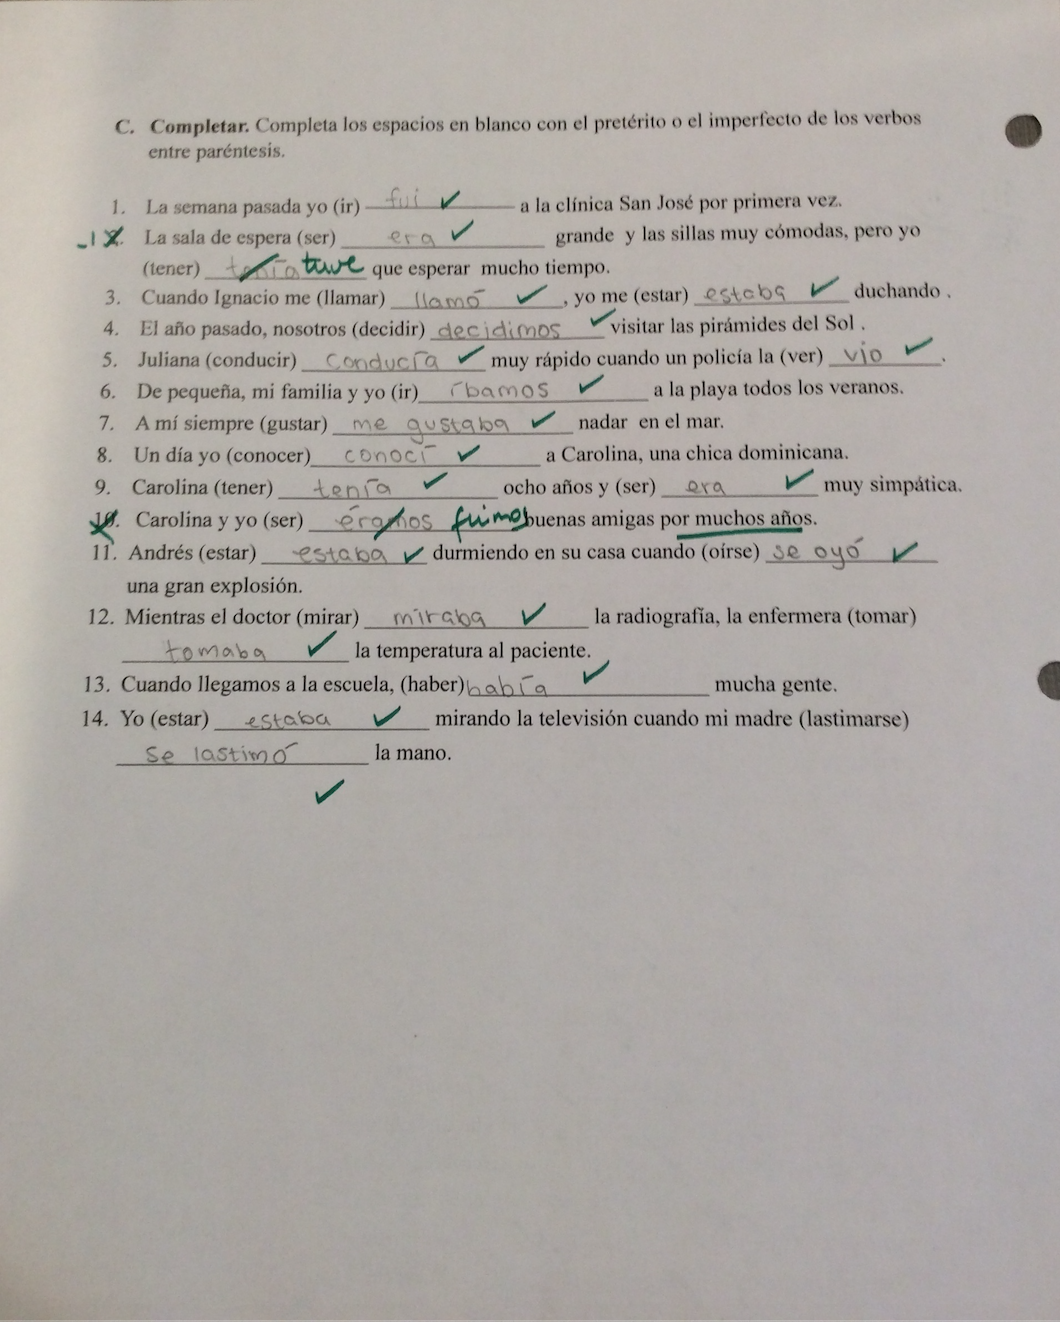 C. Completar. Completa los espacios en blanco con el pretérito o el imperfecto de los verbos
entre paréntesis.
1. La semana pasada yo (ir) fui ✓ a la clínica San José por primera vez.
-1 2. La sala de espera (ser) era ✓ grande y las sillas muy cómodas, pero yo
(tener) tenía tuve que esperar mucho tiempo.
3. Cuando Ignacio me (llamar) llamó ✓, yo me (estar) estaba ✓ duchando.
4. El año pasado, nosotros (decidir) decidimos ✓ visitar las pirámides del Sol.
5. Juliana (conducir) conducía ✓ muy rápido cuando un policía la (ver) vio ✓.
6. De pequeña, mi familia y yo (ir) íbamos ✓ a la playa todos los veranos.
7. A mí siempre (gustar) me gustaba ✓ nadar en el mar.
8. Un día yo (conocer) conocí ✓ a Carolina, una chica dominicana.
9. Carolina (tener) tenía ✓ ocho años y (ser) era ✓ muy simpática.
10. Carolina y yo (ser) éramos fuimos buenas amigas por muchos años.
11. Andrés (estar) estaba ✓ durmiendo en su casa cuando (oírse) se oyó ✓
una gran explosión.
12. Mientras el doctor (mirar) miraba ✓ la radiografía, la enfermera (tomar)
tomaba ✓ la temperatura al paciente.
13. Cuando llegamos a la escuela, (haber) había ✓ mucha gente.
14. Yo (estar) estaba ✓ mirando la televisión cuando mi madre (lastimarse)
se lastimó la mano.
✓